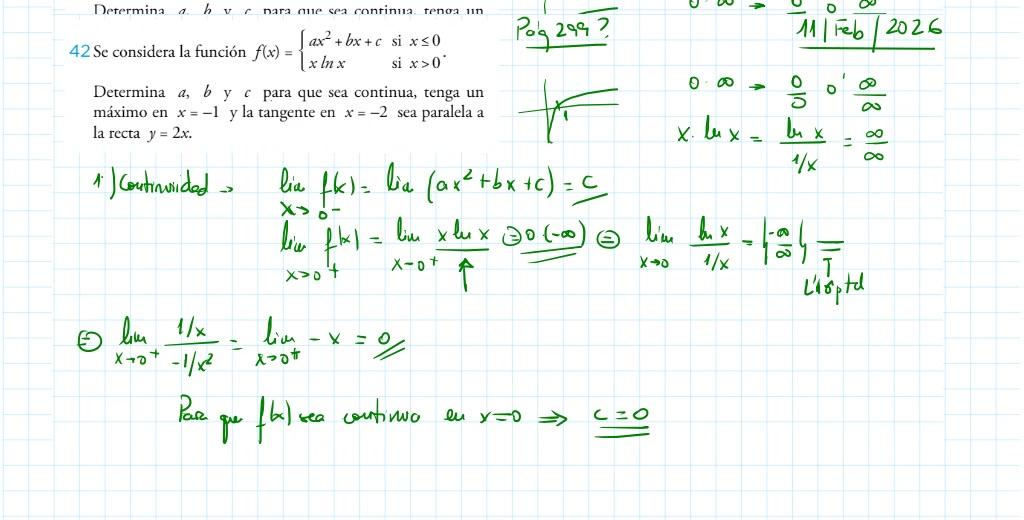 Determina a, b y c para que sea continua, tenga un
Pág 299 ?
0·∞ → 0/0 o ∞/∞
11/Feb/2026
42 Se considera la función f(x) = { ax² + bx + c si x ≤ 0
x ln x si x > 0 .
Determina a, b y c para que sea continua, tenga un
máximo en x = –1 y la tangente en x = –2 sea paralela a
la recta y = 2x.
1
0·∞ → 0/0 o ∞/∞
x·ln x = ln x / 1/x = ∞/∞
1·) Continuidad → lim x→0⁻ f(x) = lim (ax² + bx + c) = c
lim x→0⁺ f(x) = lim x→0⁺ x ln x = 0(-∞) = lim x→0 ln x / 1/x = {-∞/∞} =
L'Hôpital
= lim x→0⁺ 1/x / -1/x² = lim x→0⁺ - x = 0
Para que f(x) sea continua en x=0 ⇒ c = 0